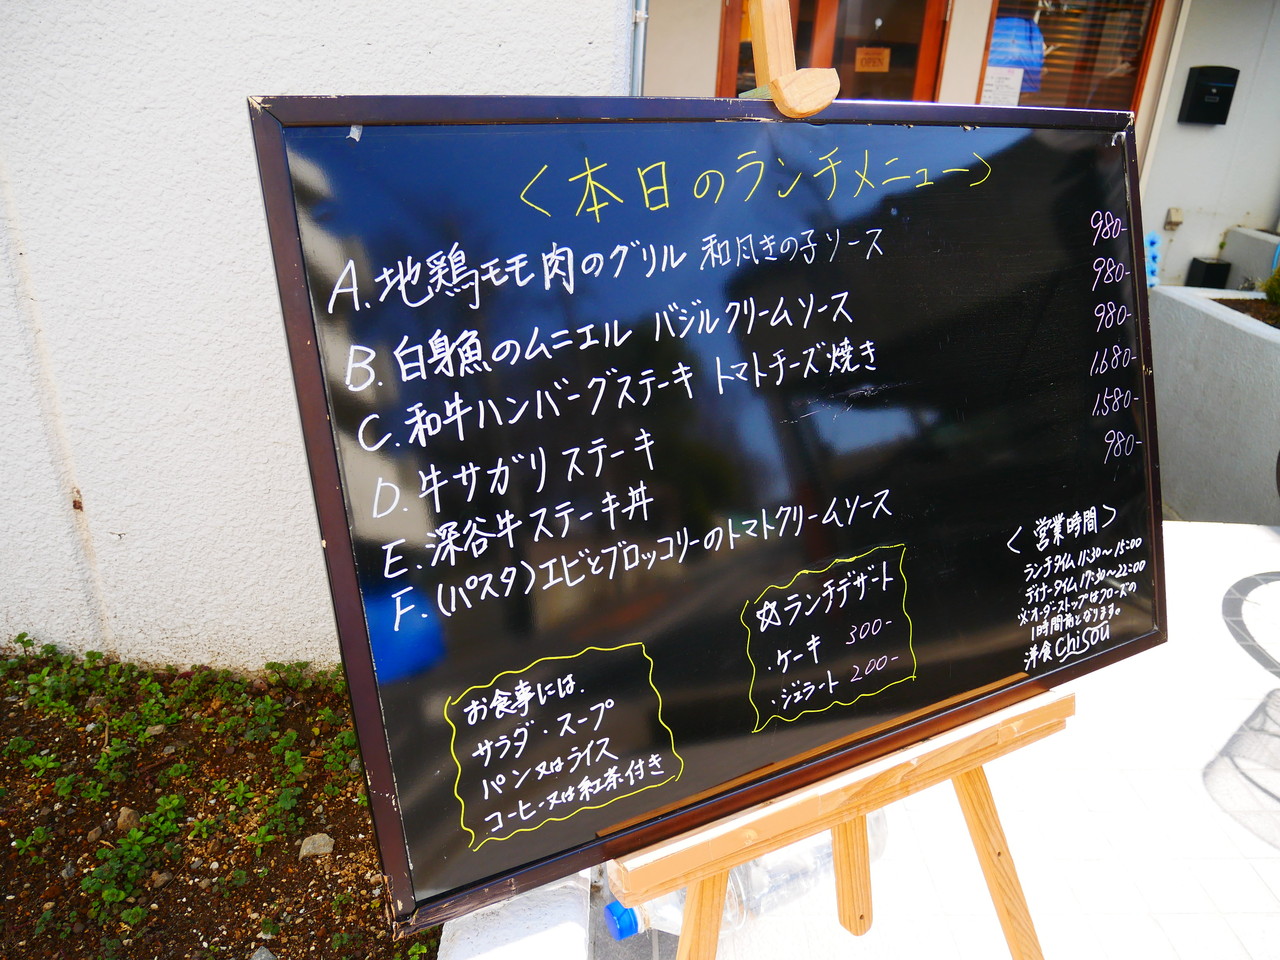 OPEN
<本日のランチメニュー>
A. 地鶏モモ肉のグリル 和風きの子ソース 980-
B. 白身魚のムニエル バジルクリームソース 980-
C. 和牛ハンバーグステーキ トマトチーズ焼き 980-
D. 牛サガリステーキ 1,680-
E. 深谷牛ステーキ丼 1,580-
F. (パスタ)エビとブロッコリーのトマトクリームソース 980-
お食事には、
サラダ・スープ
パン又はライス
コーヒー又は紅茶付き
☆ランチデザート
・ケーキ 300-
・ジェラート 200-
<営業時間>
ランチタイム 11:30〜15:00
ディナータイム 17:30〜22:00
※オーダーストップはクローズの
1時間前となります。
洋食 chisou